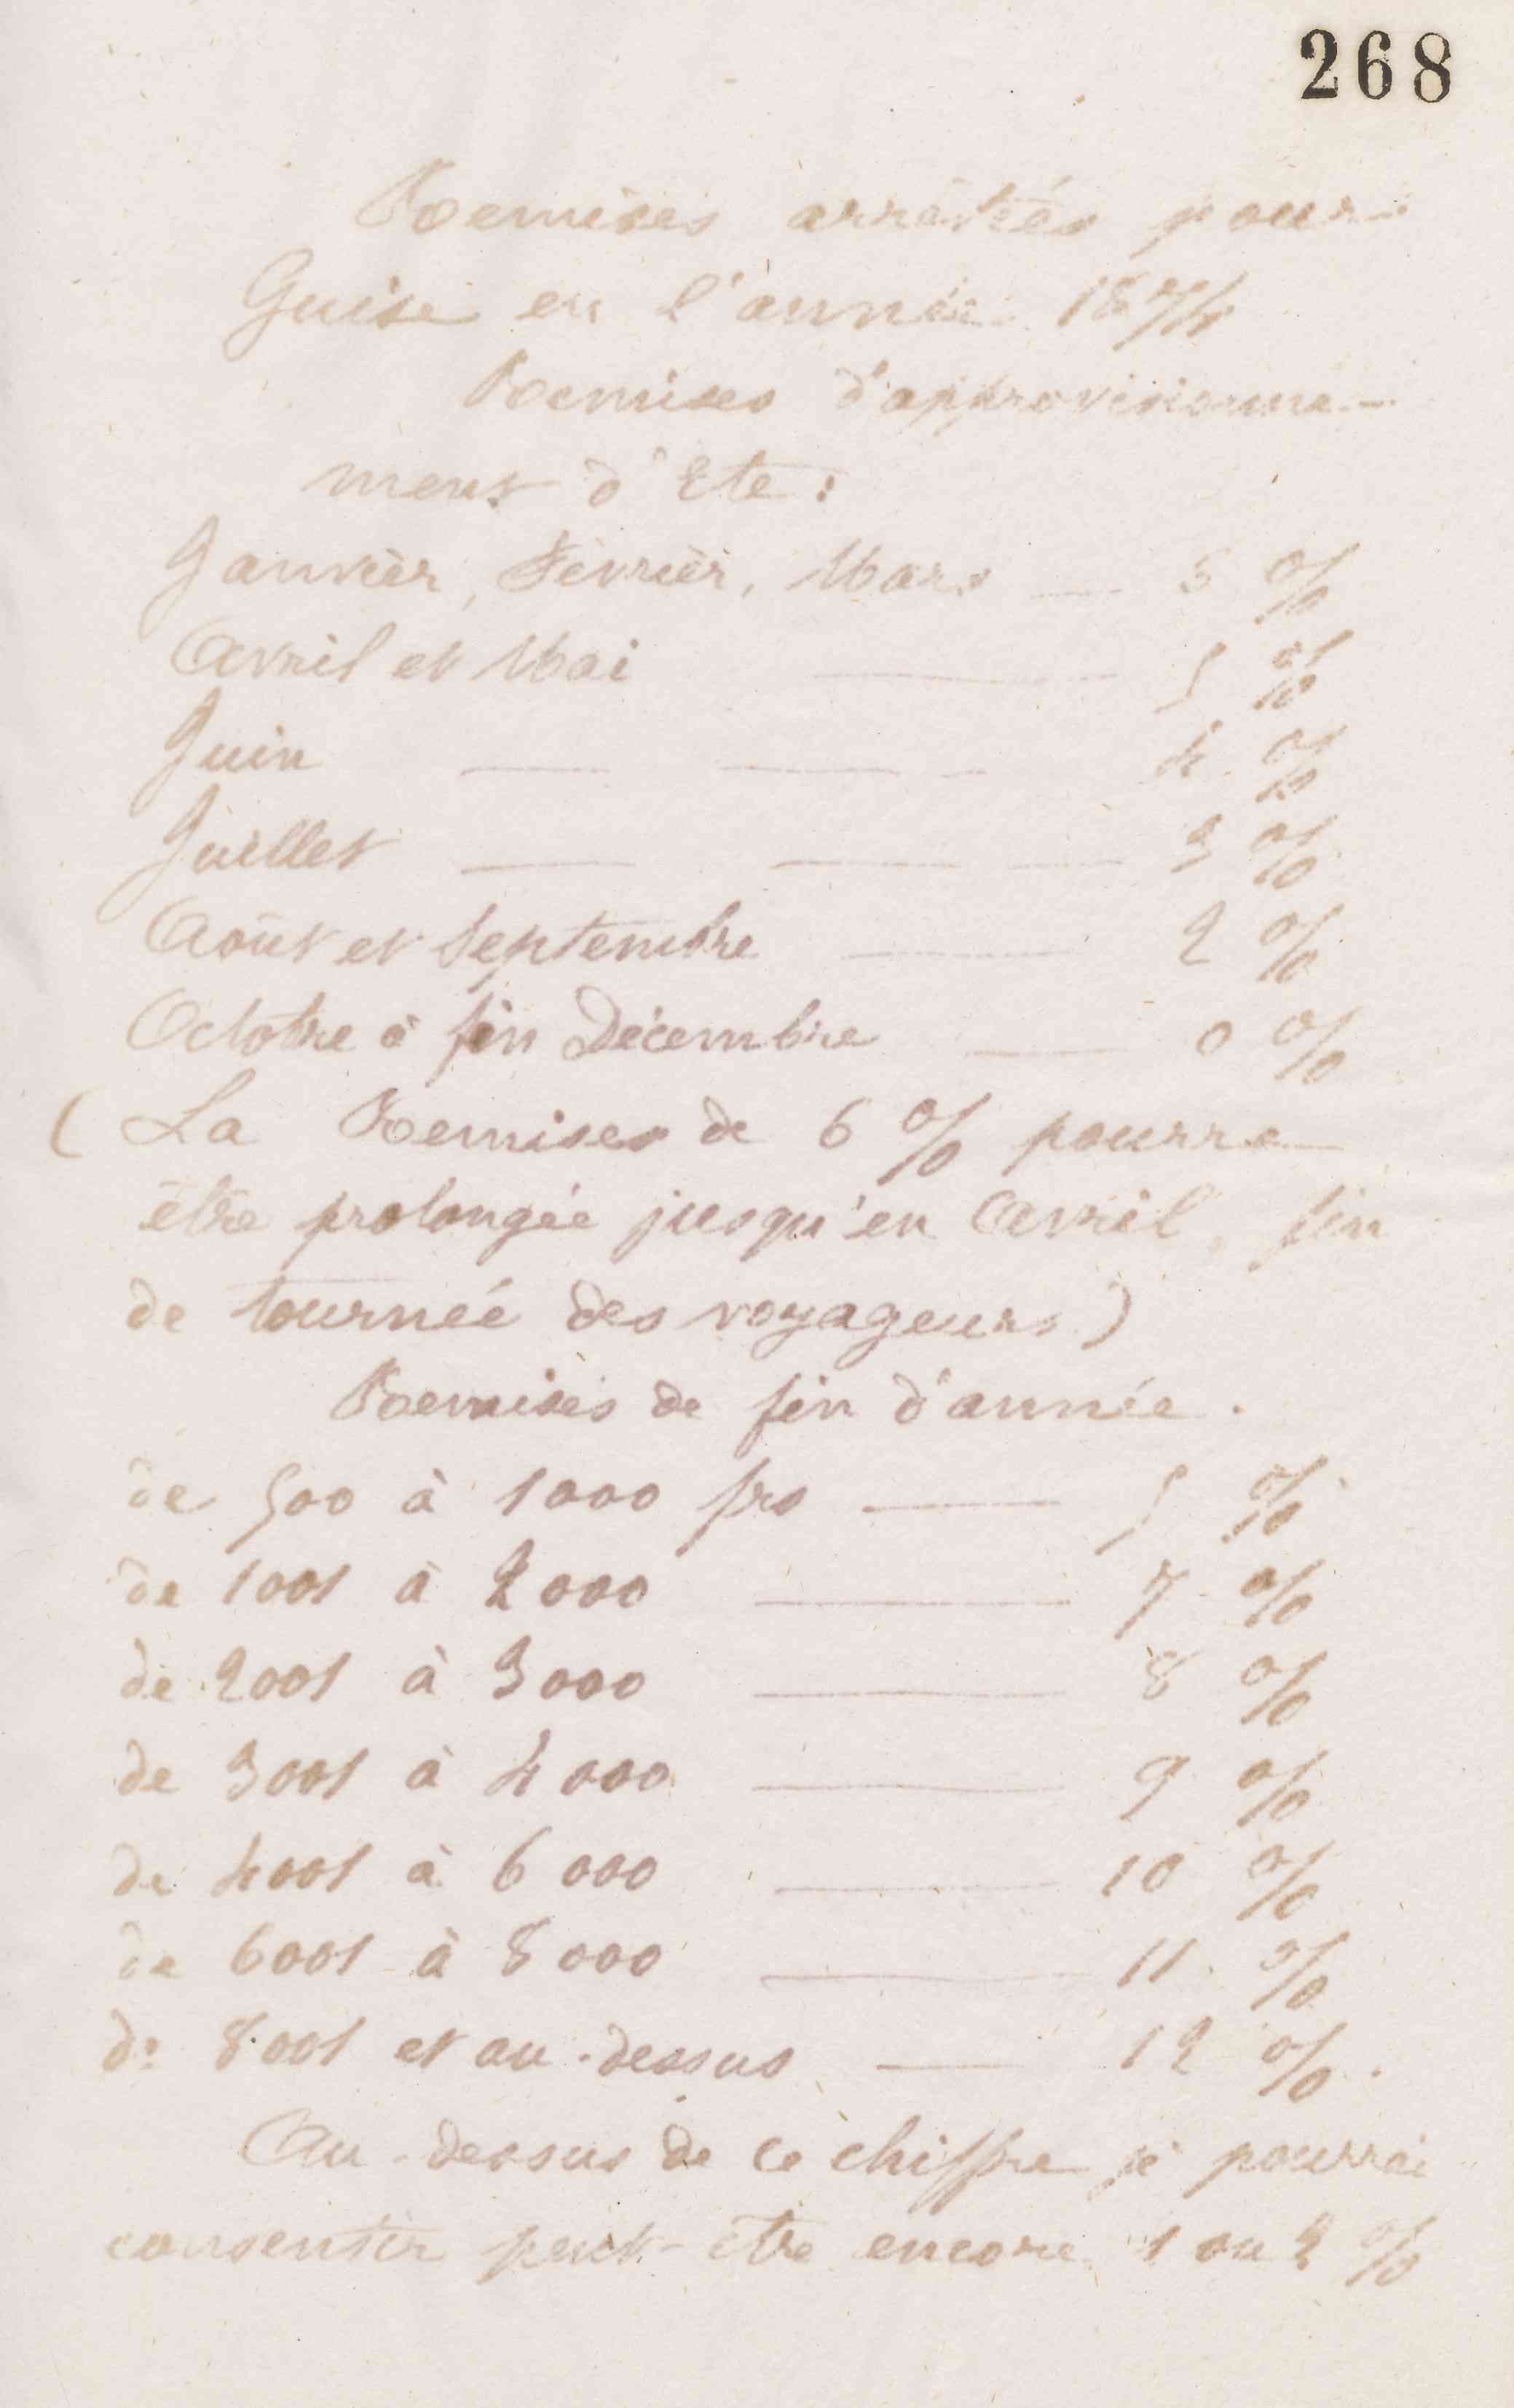 268
Remises arrêtées pour
Guise en l'année 1874
Remises d'approvisionne-
ment d'Eté :
Janvier, Février, Mars — 6 %
Avril et Mai — 5 %
Juin — — - 4 %
Juillet — — — 3 %
Août et Septembre — 2 %
Octobre à fin Décembre — 0 %
( La Remises de 6 % pourra
être prolongée jusqu'en Avril, fin
de tournée des voyageurs )
Remises de fin d'année.
de 500 à 1000 frs — 5 %
de 1001 à 2000 — 7 %
de 2001 à 3000 — 8 %
de 3001 à 4000 — 9 %
de 4001 à 6000 — 10 %
de 6001 à 8000 — 11 %
de 8001 et au-dessus — 12 %.
Au-dessus de ce chiffre je pourrai
consentir peut-être encore 1 ou 2 %